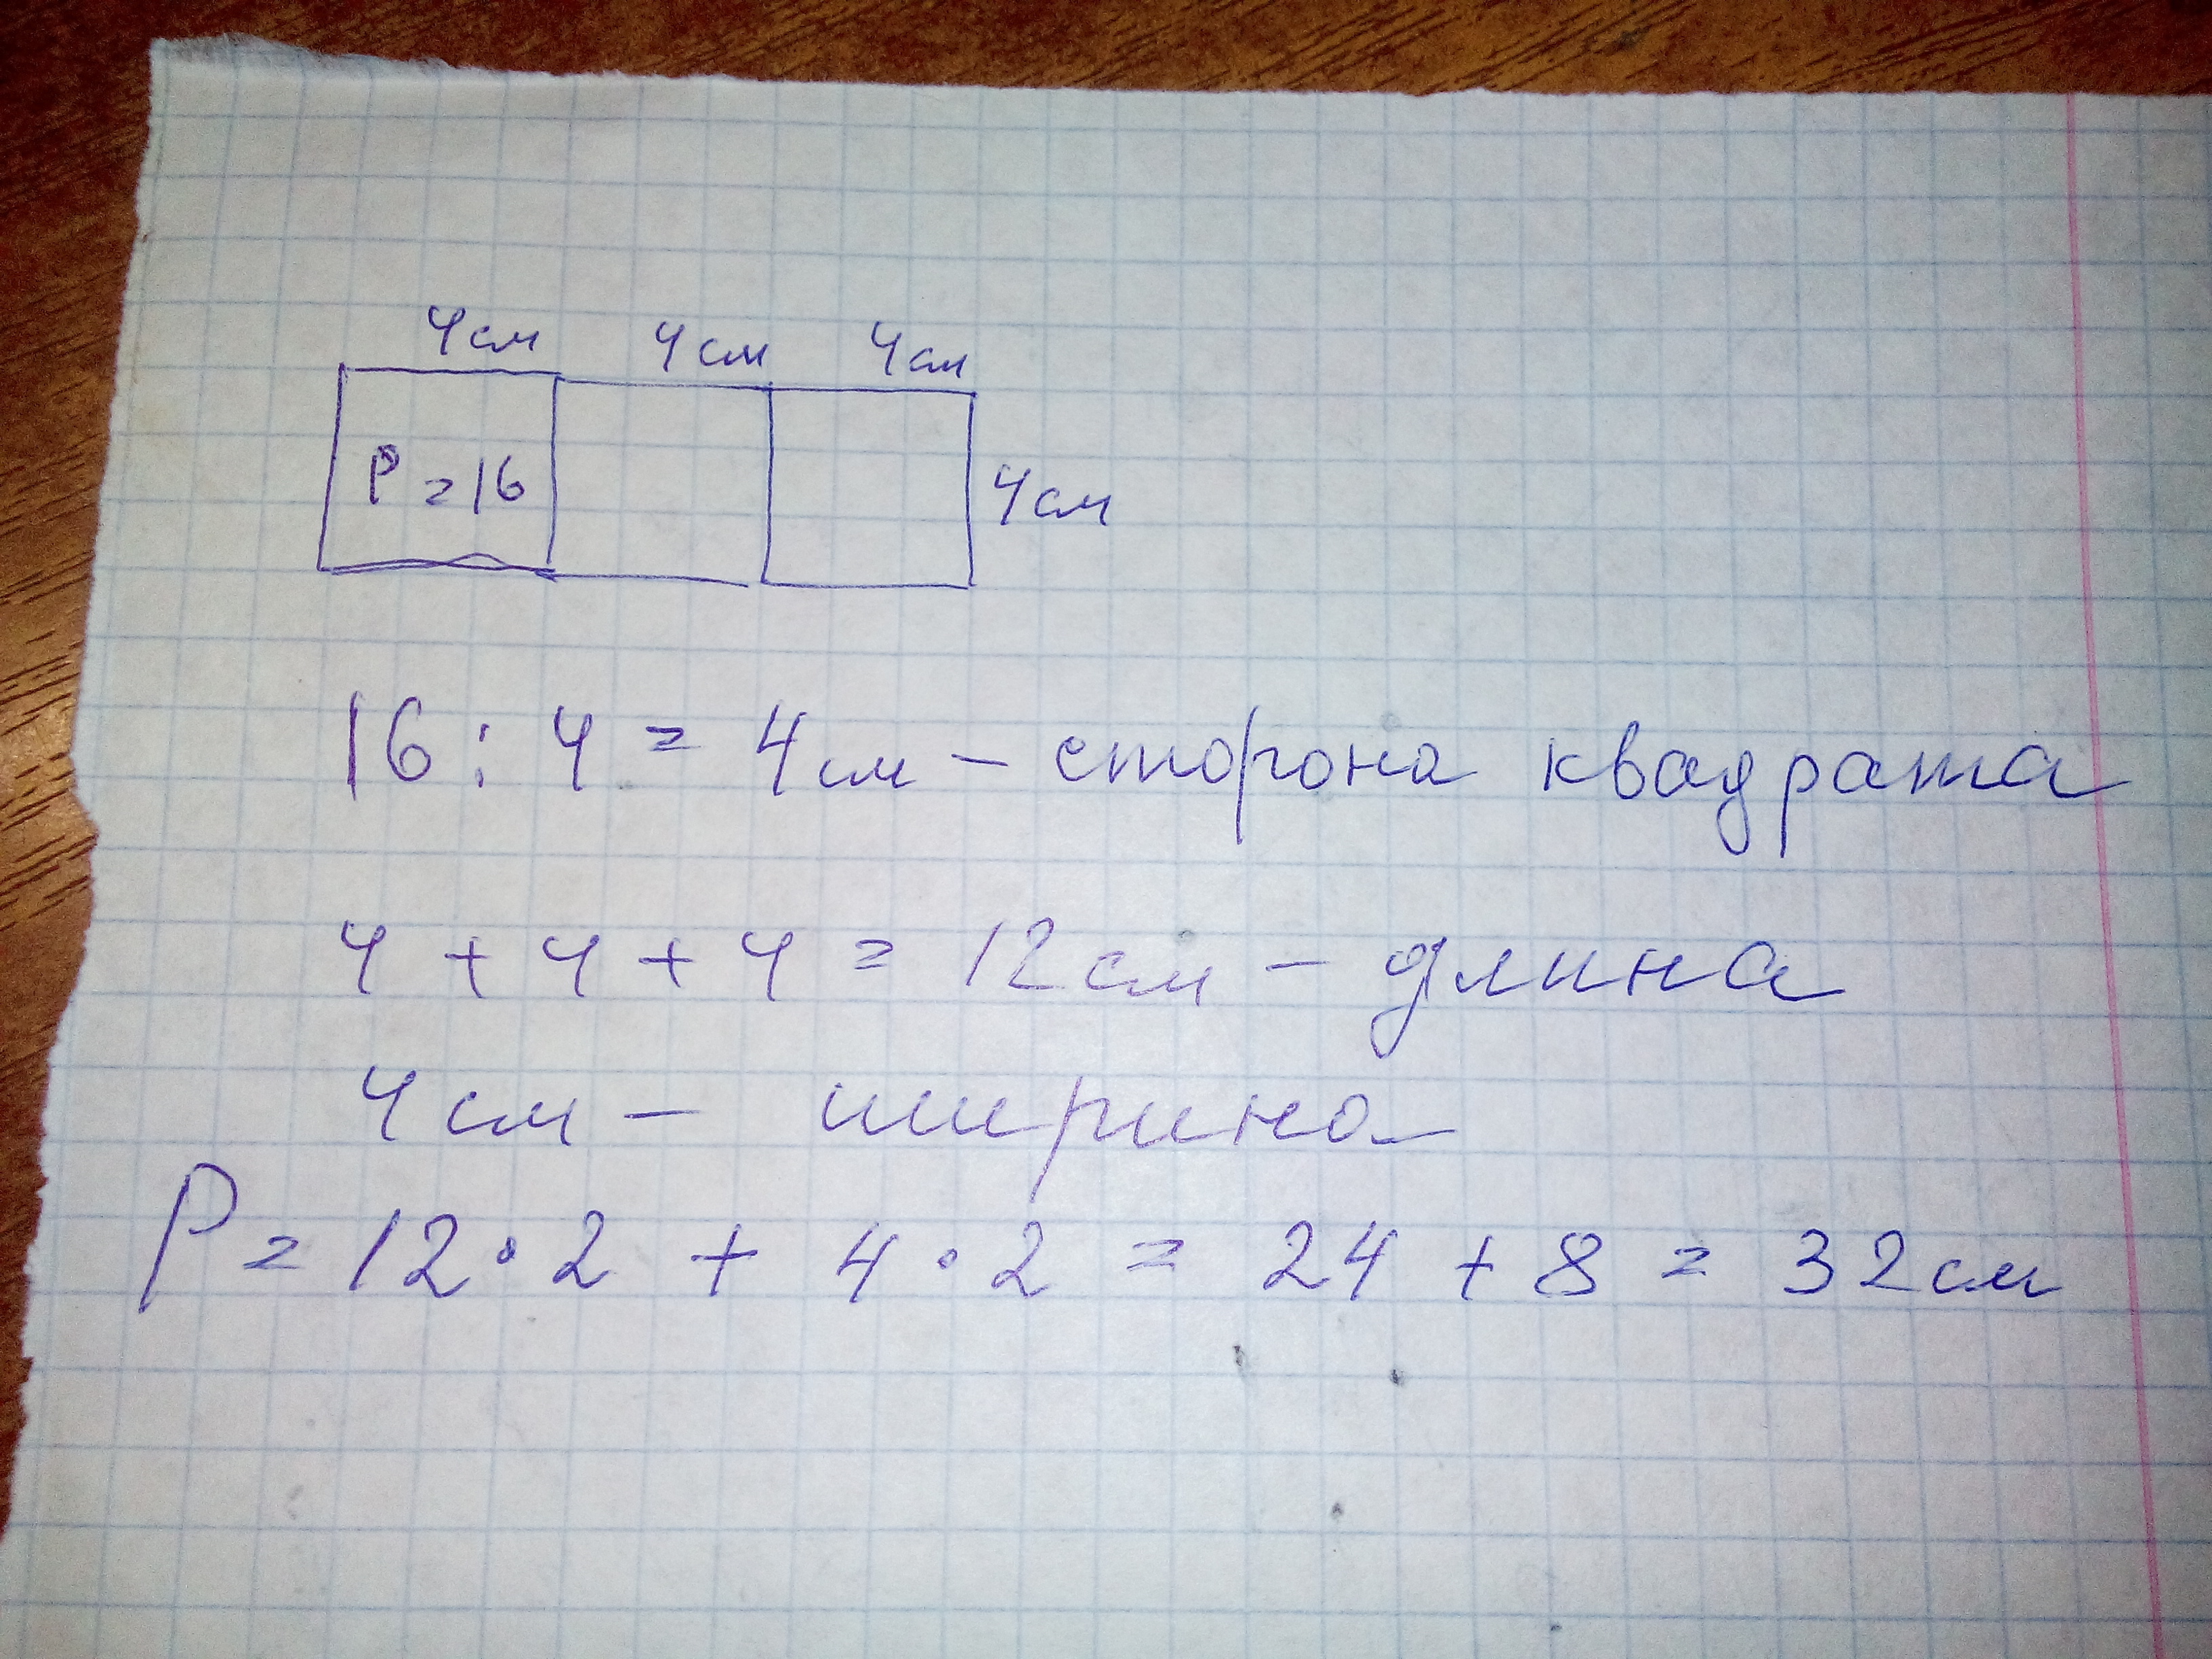 4см 4см 4см
P = 16
4см
16 : 4 = 4см - сторона квадрата
4 + 4 + 4 = 12см - длина
4см - ширина
P = 12 · 2 + 4 · 2 = 24 + 8 = 32см